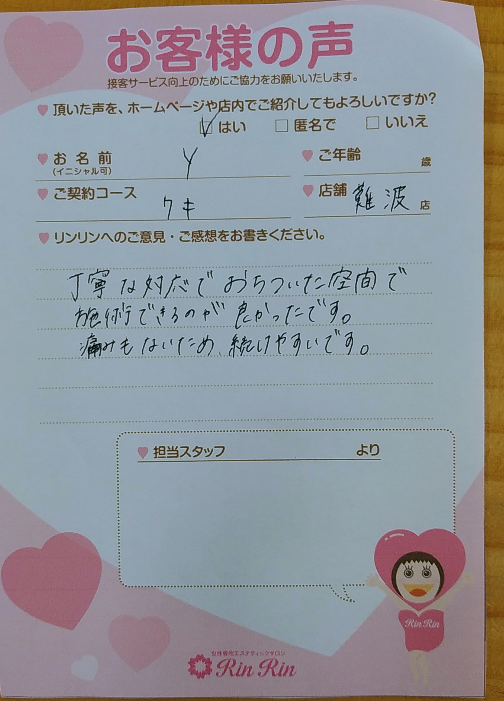 お客様の声
接客サービス向上のためにご協力をお願いいたします。
頂いた声を、ホームページや店内でご紹介してもよろしいですか?
はい 匿名で いいえ
お名前 Y ご年齢 歳
(イニシャル可)
ご契約コース ワキ 店舗 難波 店
リンリンへのご意見・ご感想をお書きください。
丁寧な対応でおちついた空間で
施術できるのが良かったです。
痛みもないため、続けやすいです。
担当スタッフ より
Rin Rin
女性専用エステティックサロン
Rin Rin